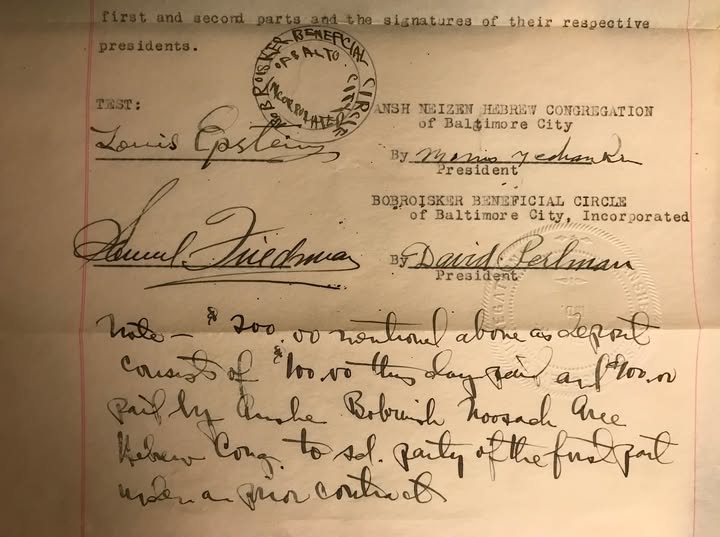 first and second parts and the signatures of their respective
presidents.
BOBROISKER BENEFICIAL CIRCLE
OF BALTO. CITY
INCORPORATED
TEST:
ANSH NEIZEN HEBREW CONGREGATION
of Baltimore City
Louis Epstein
By Morris
President
BOBROISKER BENEFICIAL CIRCLE
of Baltimore City, Incorporated
Samuel Friedman
By David Perlman
President
Note - $200.00 mentioned above as deposit
consists of $100.00 this day paid and $100.00
paid by Anshe Bobruisk Noosach Aree
Hebrew Cong. to sd. party of the first part
under a prior contract